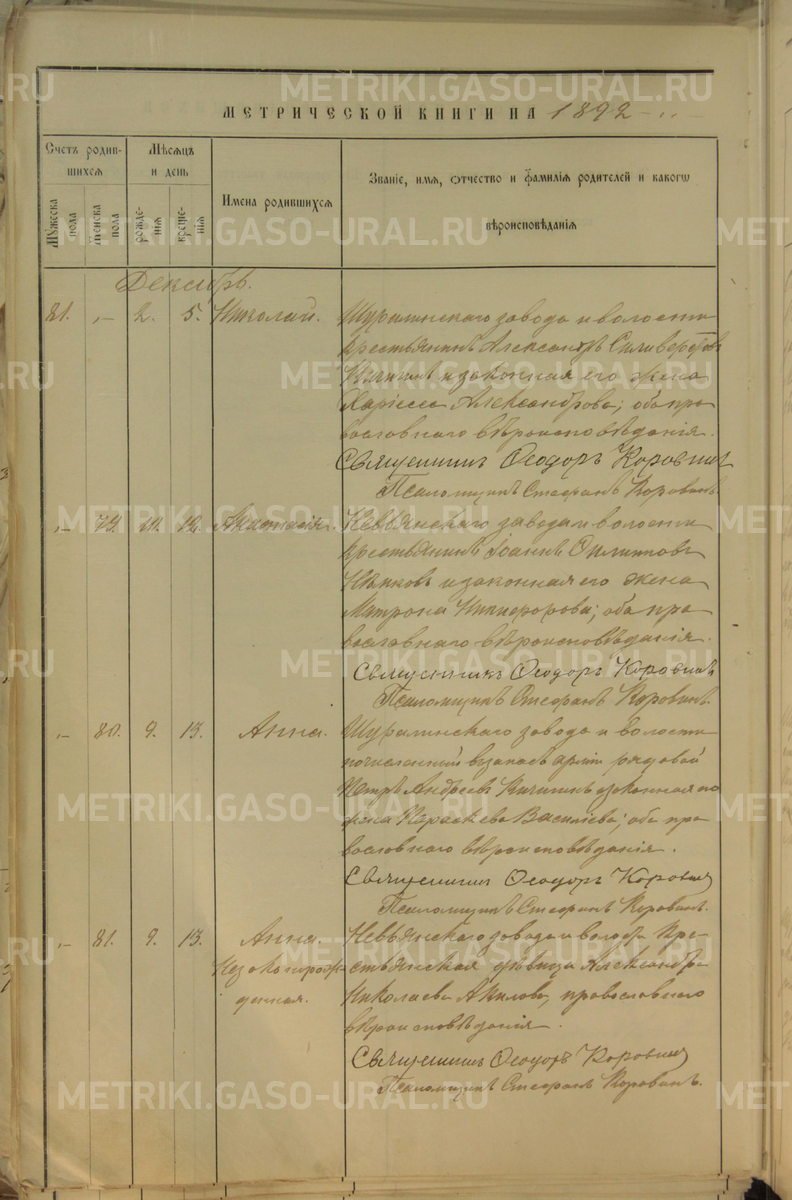 МЕТРИЧЕСКОЙ КНИГИ НА 1892
Счетъ родившихся
Мѣсяцъ и день
Имена родившихся
Званіе, имя, отчество и фамилія родителей и какого вѣроисповѣданія
Мужеска пола
Женска пола
рожденія
крещенія
Декабрь.
81. „ 2. 5. Николай. Шуралинскаго завода и волости
крестьянинъ Александръ Силиверстовъ
Кичигинъ и законная его жена
Харіесса Александрова; оба пра
вославнаго вѣроисповѣданія.
Священникъ Ѳеодоръ Коровинъ
Псаломщикъ Стефанъ Коровинъ.
„ 79. 11. 12. Анастасія. Невьянскаго завода и волости
крестьянинъ Іоаннъ Филипповъ
и законная его жена
Матрона Никифорова; оба пра
вославнаго вѣроисповѣданія.
Священникъ Ѳеодоръ Коровинъ
Псаломщикъ Стефанъ Коровинъ.
„ 80. 9. 13. Анна. Шуралинскаго завода и волости
зачисленный въ запасъ арміи рядовой
Петръ Андреевъ Кичигинъ и законная его
жена Параскева Василіева; оба пра
вославнаго вѣроисповѣданія.
Священникъ Ѳеодоръ Коровинъ
Псаломщикъ Стефанъ Коровинъ.
„ 81. 9. 13. Анна. Невьянскаго завода и волости кре
Незаконорож стьянская дѣвица Александра
денная. Николаева Акилова, православнаго
вѣроисповѣданія.
Священникъ Ѳеодоръ Коровинъ
Псаломщикъ Стефанъ Коровинъ.
METRIKI.GASO-URAL.RU